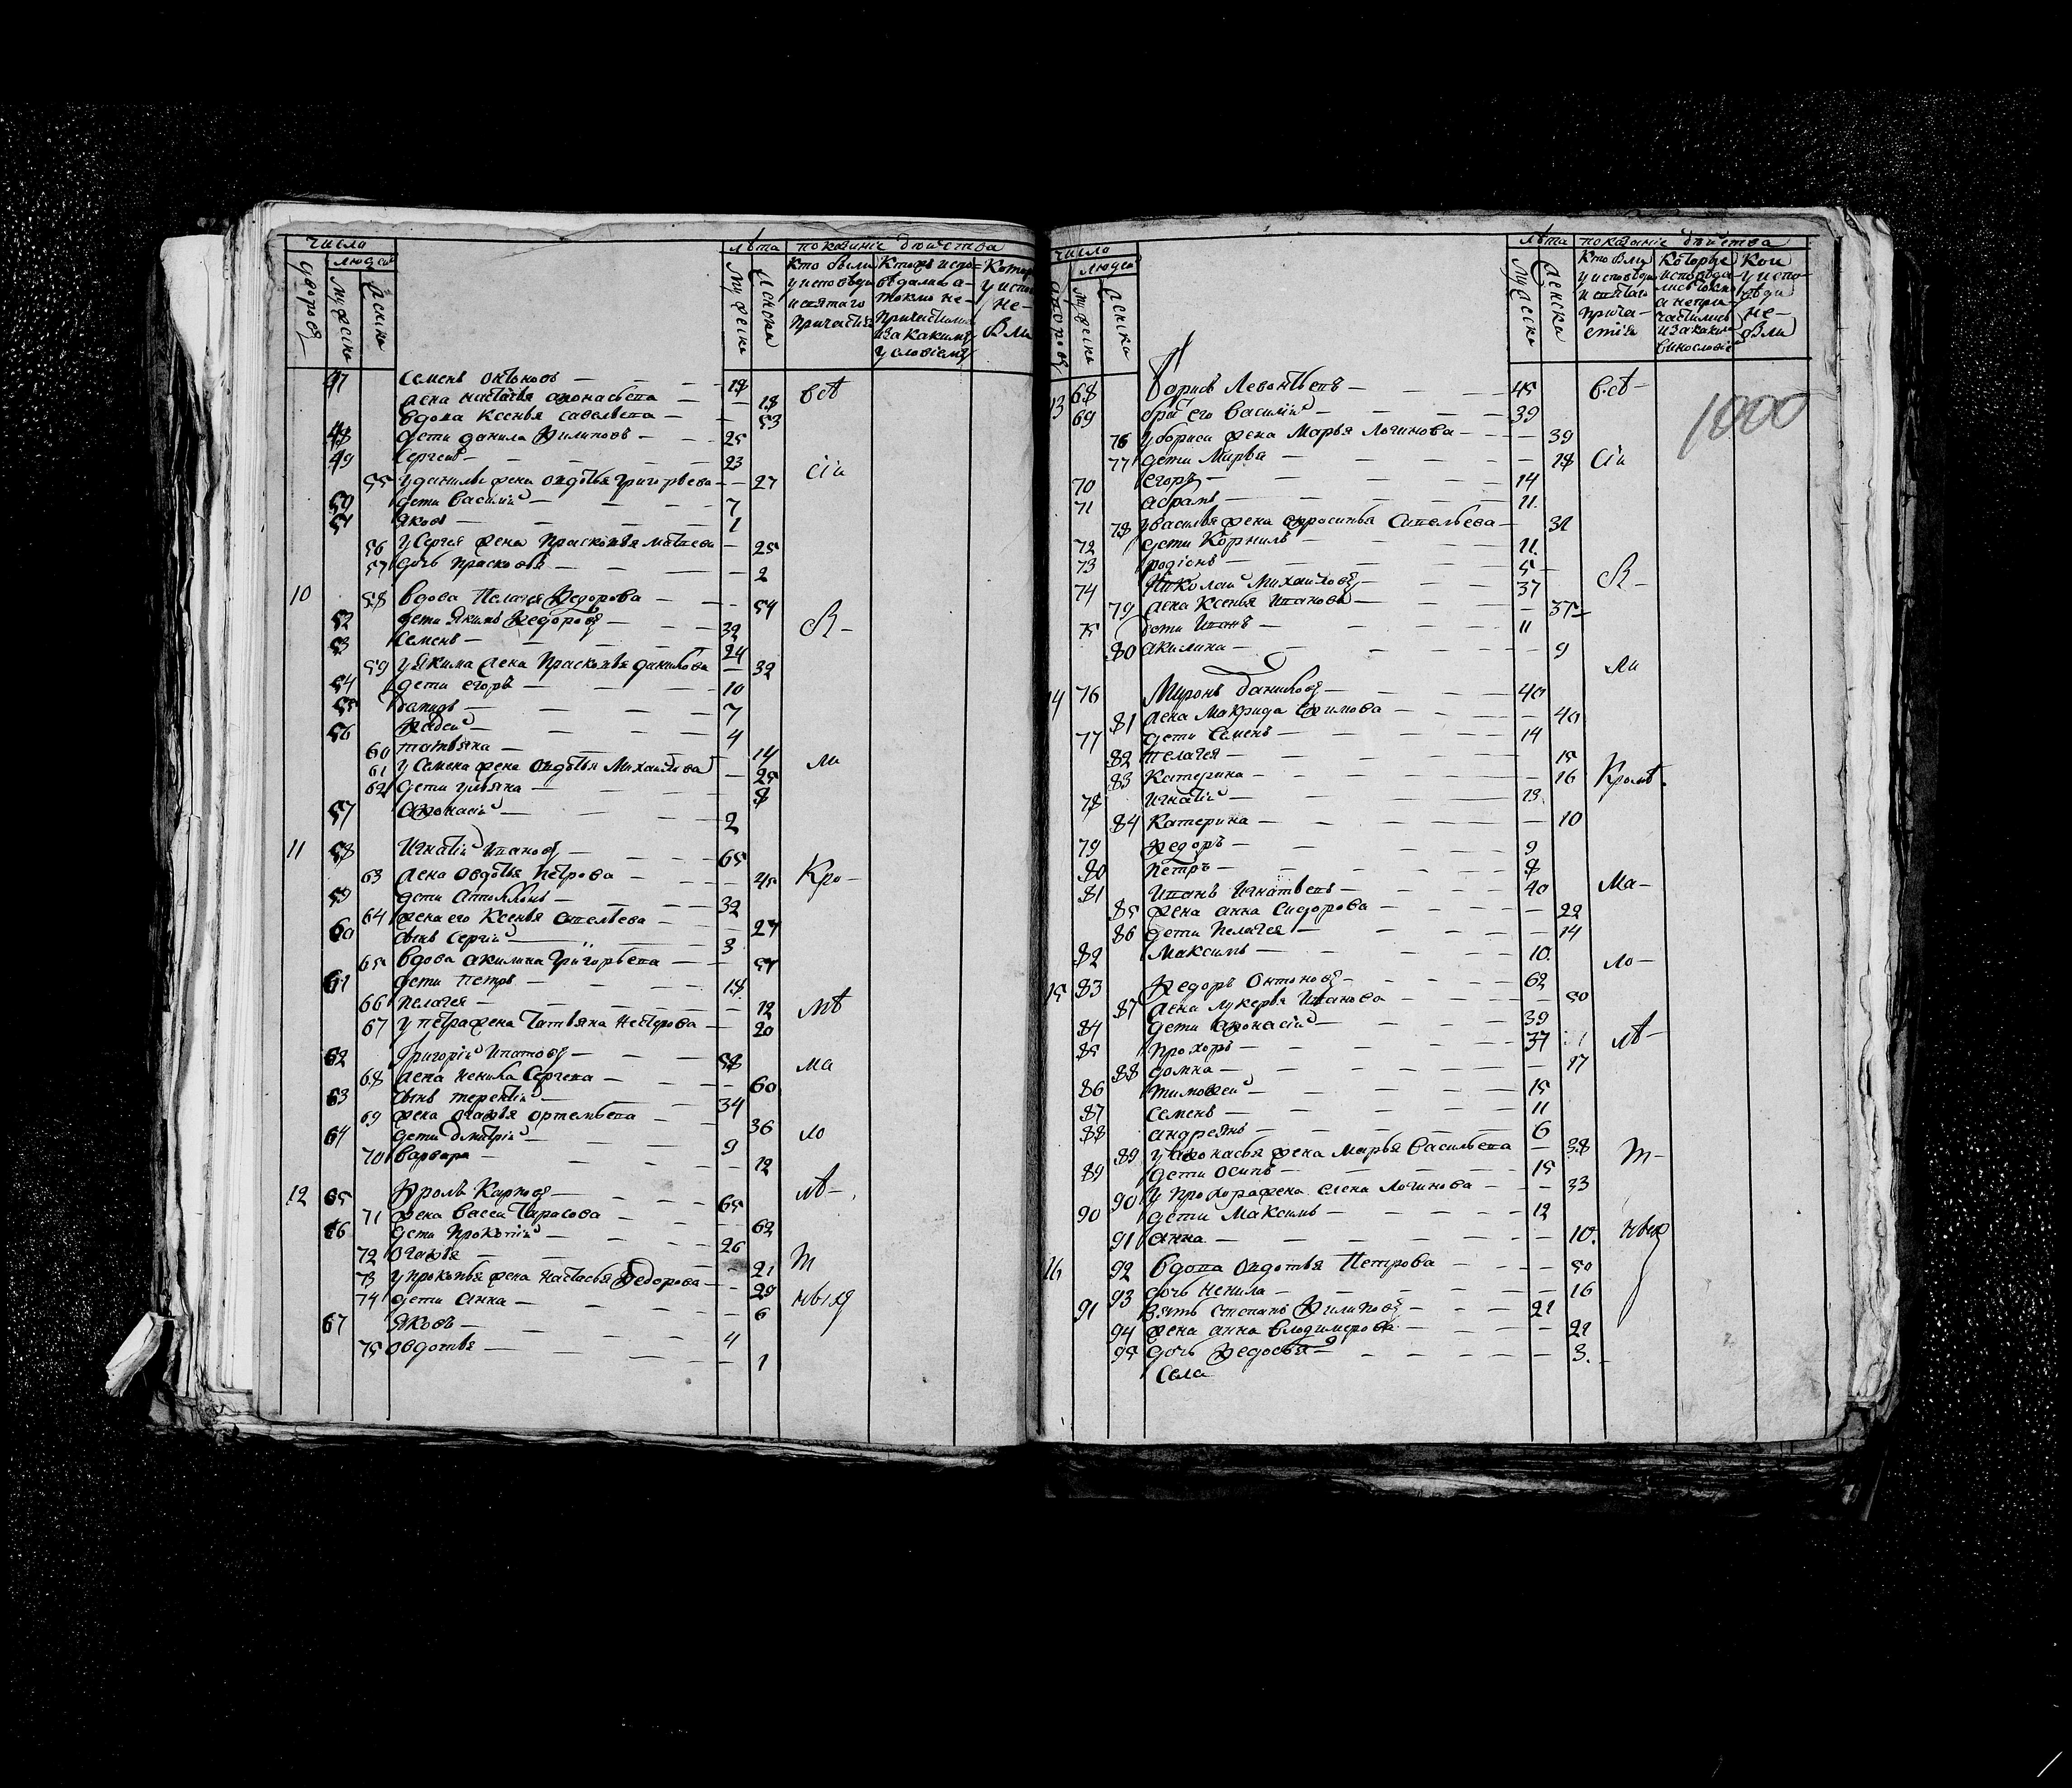 числа лѣта показаніе дѣйства
дворовъ людей мужеска женска мужеска женска
кто были у исповѣди и святаго причастія
Которые исповѣдались а токмо не причастились и за какимъ условіемъ
Которые у исповѣди не были
47 Семенъ онтоновъ — 18
жена настасья афонасьева — 18 всѣ
вдова Ксенья савельева — 53
48 дети данила Филиповъ — 25
49 Сергей — 23
55 у данилы жена овдотья григорьева — 27 сіи
50 дети василий — 7
51 яковъ — 1
56 у Сергея жена Прасковья матвеева — 25
57 дочь прасковья — 2
10 58 вдова Пелагея Федорова — 54
52 дети Якимъ Федоровъ — 32
53 Семенъ — 24
59 у Якима жена Прасковья данилова — 32
54 дети егоръ — 10
55 давидъ — 7
56 Фадей — 4
60 татьяна — 14
61 у Семена жена овдотья Михайлова — 25 ма
62 дети ульяна — 8
57 афонасій — 2
11 58 Игнатій ивановъ — 65
63 жена овдотья Петрова — 45 Кро-
59 дети — 32
64 жена его Ксенья савельева — 27
60 сынъ Сергій — 3
65 вдова акилина григорьева — 54
61 дети петръ — 18
66 пелагея — 12 мѣ
67 у петра жена татьяна нестерова — 20
62 Григорій ипатовъ — 58 ма
68 жена ненила Сергеева — 60
63 сынъ терентій — 34
69 жена офимья ортемьева — 36
64 дети дмитрій — 9 ло
70 варвара — 12
12 65 Фролъ Карповъ — 65 лѣ-
71 жена васса тарасова — 62
66 дети прокопій — 26
72 — 21 т
73 у прокопья жена настасья Федорова — 29
74 дети анна — 6 ныхъ
67 яковъ — 4
75 овдотья — 1
числа лѣта показаніе дѣйства
дворовъ людей мужеска женска мужеска женска
кто были у исповѣди и святаго причастія
Которые исповѣдались токмо а не причастились и за какимъ
Кои у исповѣди не были
1000
13 68 борисъ Леонтьевъ — 45 всѣ-
69 братъ его василий — 39
76 у бориса жена Марья логинова — 39
77 дети Марья — 18 сіи
70 егоръ — 14
71 абрамъ — 11
78 у василья жена ефросинья савельева — 31
72 дети Корнилъ — 11
73 родіонъ — 5
74 Николай Михайловъ — 37
79 жена Ксенья иванова — 35
75 дети иванъ — 11
80 акилина — 9
14 76 Миронъ даниловъ — 40
81 жена Макрида ефимова — 40
77 дети Семенъ — 14
82 пелагея — 15
83 Катерина — 16 Кромѣ
78 игнатій — 13
84 Катерина — 10
79 Федоръ — 9
80 Петръ — 8
81 иванъ игнатьевъ — 40 ма-
85 жена анна Сидорова — 22
86 дети пелагея — 14
82 Максимъ — 10 ло-
15 83 Федоръ онтоновъ — 62
87 жена лукерья иванова — 50
84 дети афонасій — 39
85 прохоръ — 37 лѣ-
88 домна — 17
86 тимофей — 15
87 семенъ — 11
88 андреянъ — 6
89 у афонасья жена марья васильева — 38 т-
89 дети осипъ — 15
90 у прохора жена елена логинова — 33
90 дети максимъ — 12
91 анна — 10 ныхъ
16 92 вдова овдотья Петрова — 50
93 дочь ненила — 16
91 зять степанъ Филиповъ — 21
94 жена анна владимерова — 21
95 дочь Федосья — 3
Села